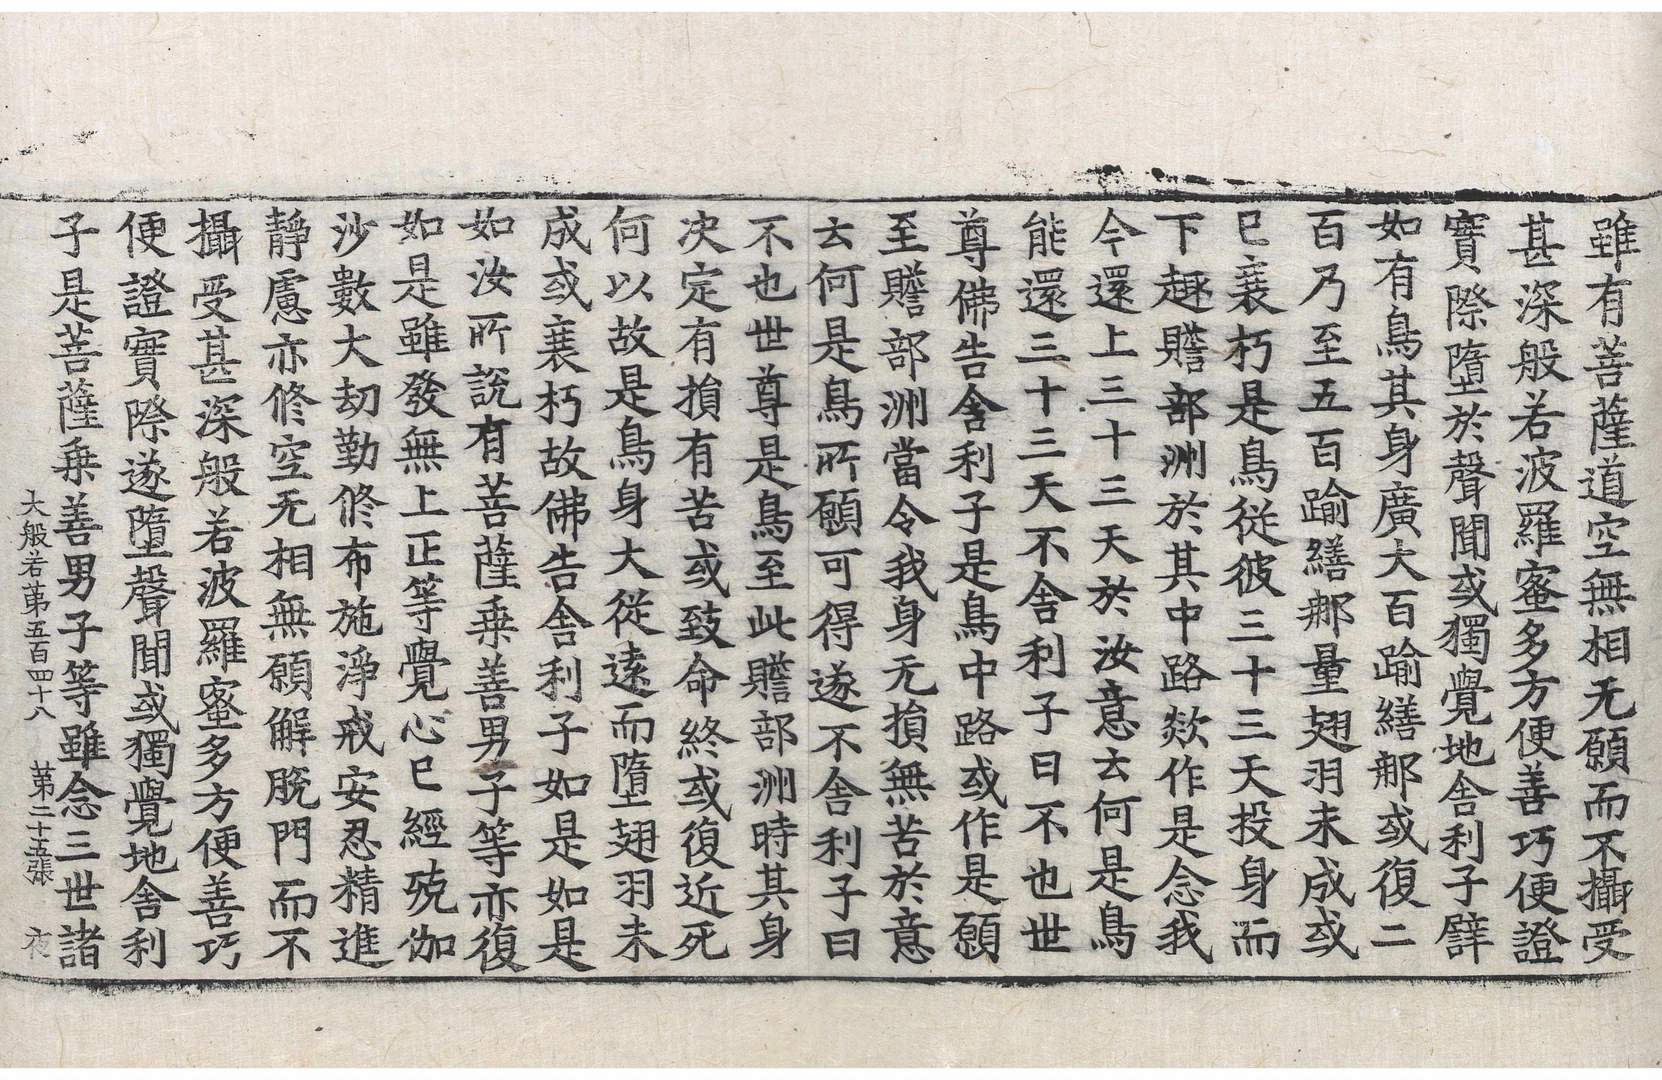 雖有菩薩道空無相无願而不攝受
甚深般若波羅蜜多方便善巧便證
實際墮於聲聞或獨覺地舍利子譬
如有鳥其身廣大百踰繕那或復二
百乃至五百踰繕那量翅羽未成或
已衰朽是鳥從彼三十三天投身而
下趣贍部洲於其中路欻作是念我
今還上三十三天於汝意云何是鳥
能還三十三天不舍利子曰不也世
尊佛告舍利子是鳥中路或作是願
至贍部洲當令我身无損無苦於意
云何是鳥所願可得遂不舍利子曰
不也世尊是鳥至此贍部洲時其身
决定有損有苦或致命終或復近死
何以故是鳥身大從遠而墮翅羽未
成或衰朽故佛告舍利子如是如是
如汝所說有菩薩乗善男子等亦復
如是雖發無上正等覺心已經殑伽
沙數大劫勤修布施淨戒安忍精進
靜慮亦修空无相無願解脫門而不
攝受甚深般若波羅蜜多方便善巧
便證實際遂墮聲聞或獨覺地舍利
子是菩薩乗善男子等雖念三世諸
大般若苐五百四十八 苐二十五張 夜